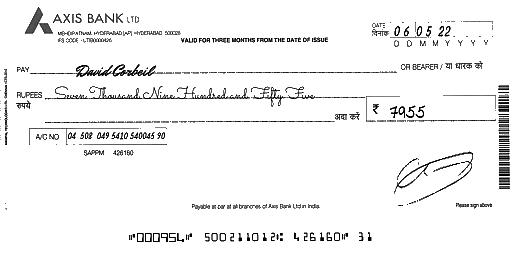 AXIS BANK LTD
MEHDIPATNAM, HYDERABAD [AP] - HYDERABAD 500028
IFS CODE - UTIB0000426
VALID FOR THREE MONTHS FROM THE DATE OF ISSUE
DATE दिनांक 06 05 22
D D M M Y Y Y Y
PAY David Corbeil OR BEARER / या धारक को
RUPEES रुपये Seven Thousand Nine Hundred and Fifty Five
अदा करें ₹ 7955
A/C NO 04 508 049 5410 540045 90
SAPPM 426160
Payable at par at all branches of Axis Bank Ltd in India.
Please sign above
⑈000954⑈ 500211012⑆ 426160⑈ 31